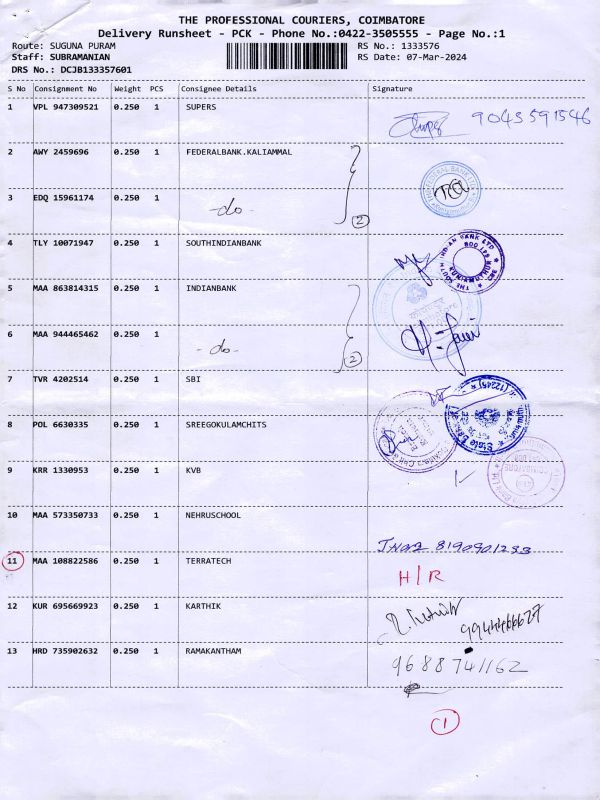 THE PROFESSIONAL COURIERS, COIMBATORE
Delivery Runsheet - PCK - Phone No.:0422-3505555 - Page No.:1
Route: SUGUNA PURAM RS No.: 1333576
Staff: SUBRAMANIAN RS Date: 07-Mar-2024
DRS No.: DCJB133357601
S No Consignment No Weight PCS Consignee Details Signature
1 VPL 947309521 0.250 1 SUPERS 9043591546
2 AWY 2459696 0.250 1 FEDERALBANK.KALIAMMAL
3 EDQ 15961174 0.250 1 -do- 2
4 TLY 10071947 0.250 1 SOUTHINDIANBANK
5 MAA 863814315 0.250 1 INDIANBANK
6 MAA 944465462 0.250 1 -do- 2
7 TVR 4202514 0.250 1 SBI
8 POL 6630335 0.250 1 SREEGOKULAMCHITS
9 KRR 1330953 0.250 1 KVB
10 MAA 573350733 0.250 1 NEHRUSCHOOL
11 MAA 108822586 0.250 1 TERRATECH H/R
12 KUR 695669923 0.250 1 KARTHIK
13 HRD 735902632 0.250 1 RAMAKANTHAM 9688741162
1